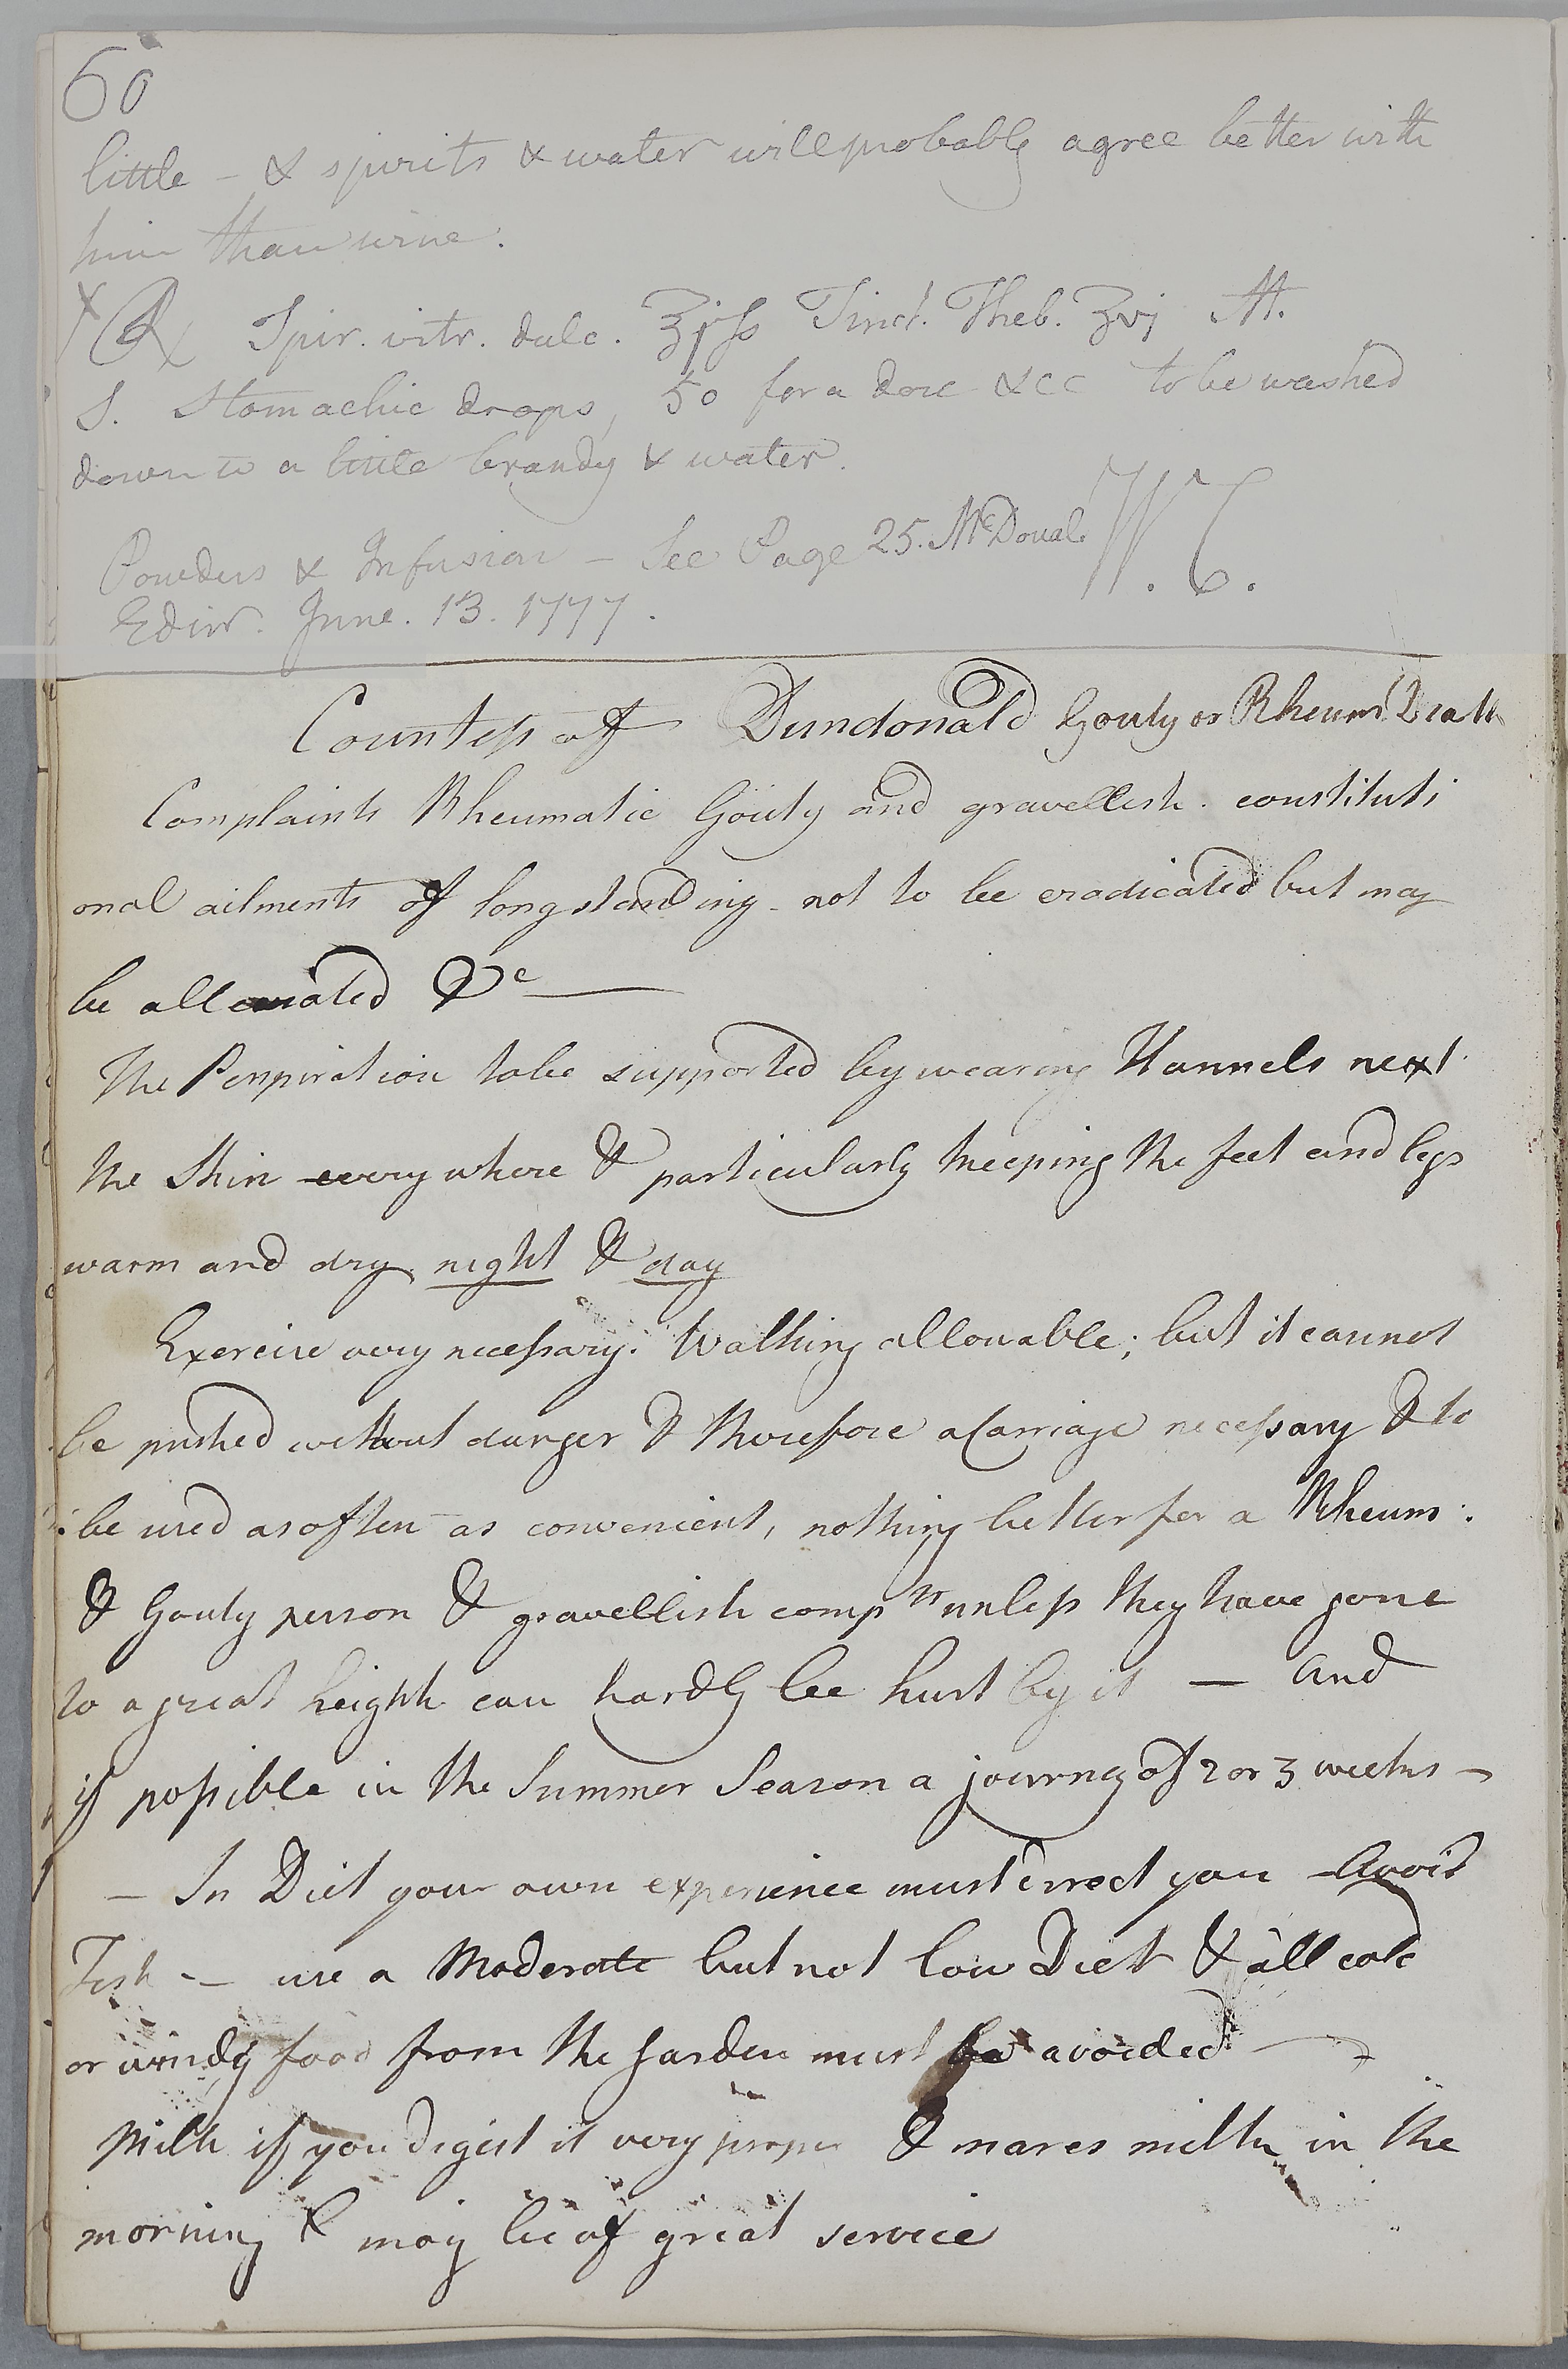 60
little - & spirits & water will probably agree better with
him than wine.
x ℞ Spir. vitr. dulc. ʒjſs Tinct. Theb. ʒvj M.
S. Stomachic drops, 50 for a dose &cc to be washed
down w a little brandy & water.
Powders & Infusion - See Page 25. McDonal. W. C.
Edinr. June. 13. 1777.
Countess of Dundonald Gouty or Rheum
Complaints Rheumatic Gouty and gravellish. constituti
onal ailments of long standing - not to be eradicated but may
be alleviated &c
The Perspiration to be supported by wearing Flannels next
the Skin every where & particularly keeping the feet and legs
warm and dry night & day
Exercise very necessary. Walking allowable; but it cannot
be pushed without danger & therefore a Carriage necessary & to
be used as often as convenient, nothing better for a Rheum:
& Gouty person & gravellish compts unless they have gone
to a great height can hardly be hurt by it — And
if possible in the Summer Season a journey of 2 or 3 weeks -
- In Diet your own experience must direct you - Avoid
Fish - use a Moderate but not low Diet & all cold
or windy food from the garden must be avoided
Milk if you digest it very proper & mares milk in the
morning & may be of great service